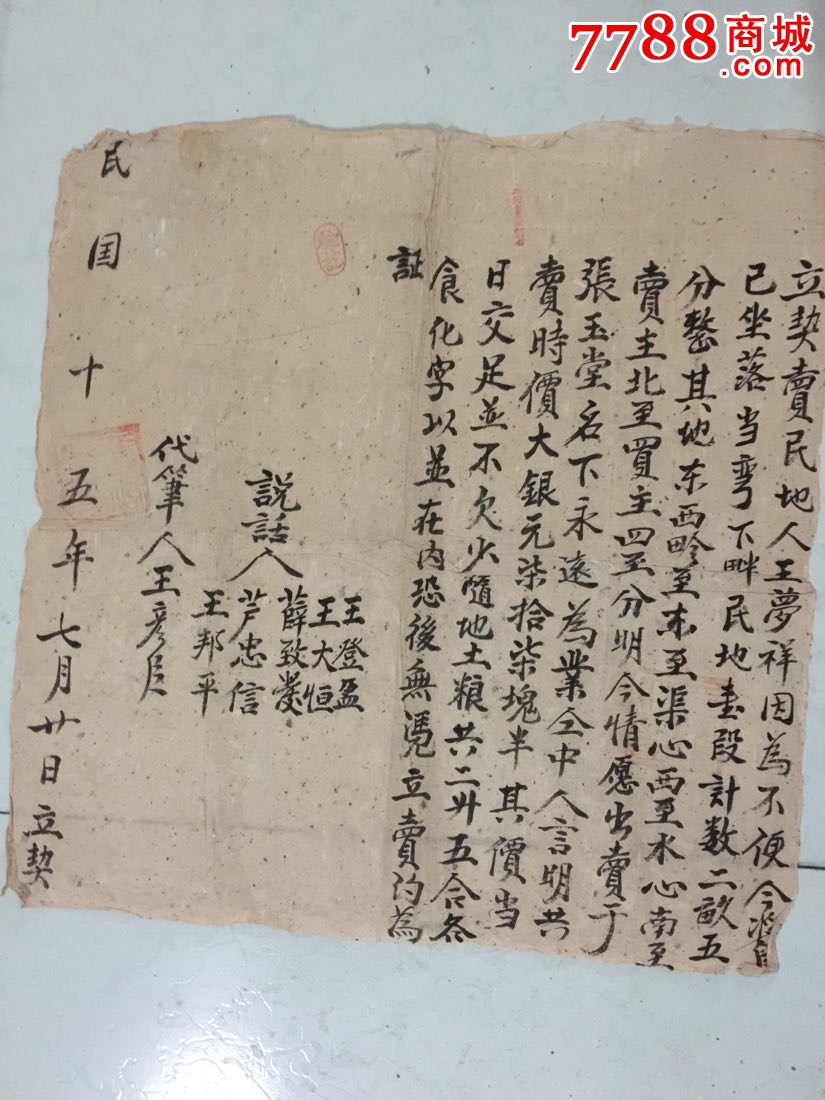 7788商城
.com
立契賣民地人王夢祥因為不便今將自
己坐落当弯下畔民地壹段計数二畝五
分整其地东西畛至东至渠心西至水心南至
賣主北至買主四至分明今情愿出賣于
張玉堂名下永遠為業仝中人言明共
賣時價大銀元柒拾柒塊半其價当
日交足並不欠少隨地土粮共二升五合冬
食化字以並在內恐後無憑立賣約為
証
王登盈
王大恒
薛致
説話人
芦忠信
王邦平
代筆人王彦臣
民国十五年七月廿日立契